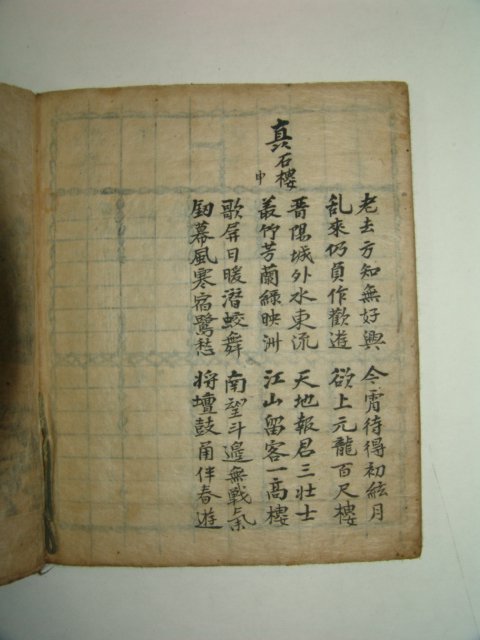 矗石樓
申
老去方知無好興 今霄待得初絃月
乱來仍負作歡遊 欲上元龍百尺樓
晋陽城外水東流 天地報君三壯士
叢竹芳蘭綠映洲 江山留客一高樓
歌屏日暖潛蛟舞 南望斗邊無戰氣
釼幕風寒宿鷺愁 將壇鼓角伴春遊